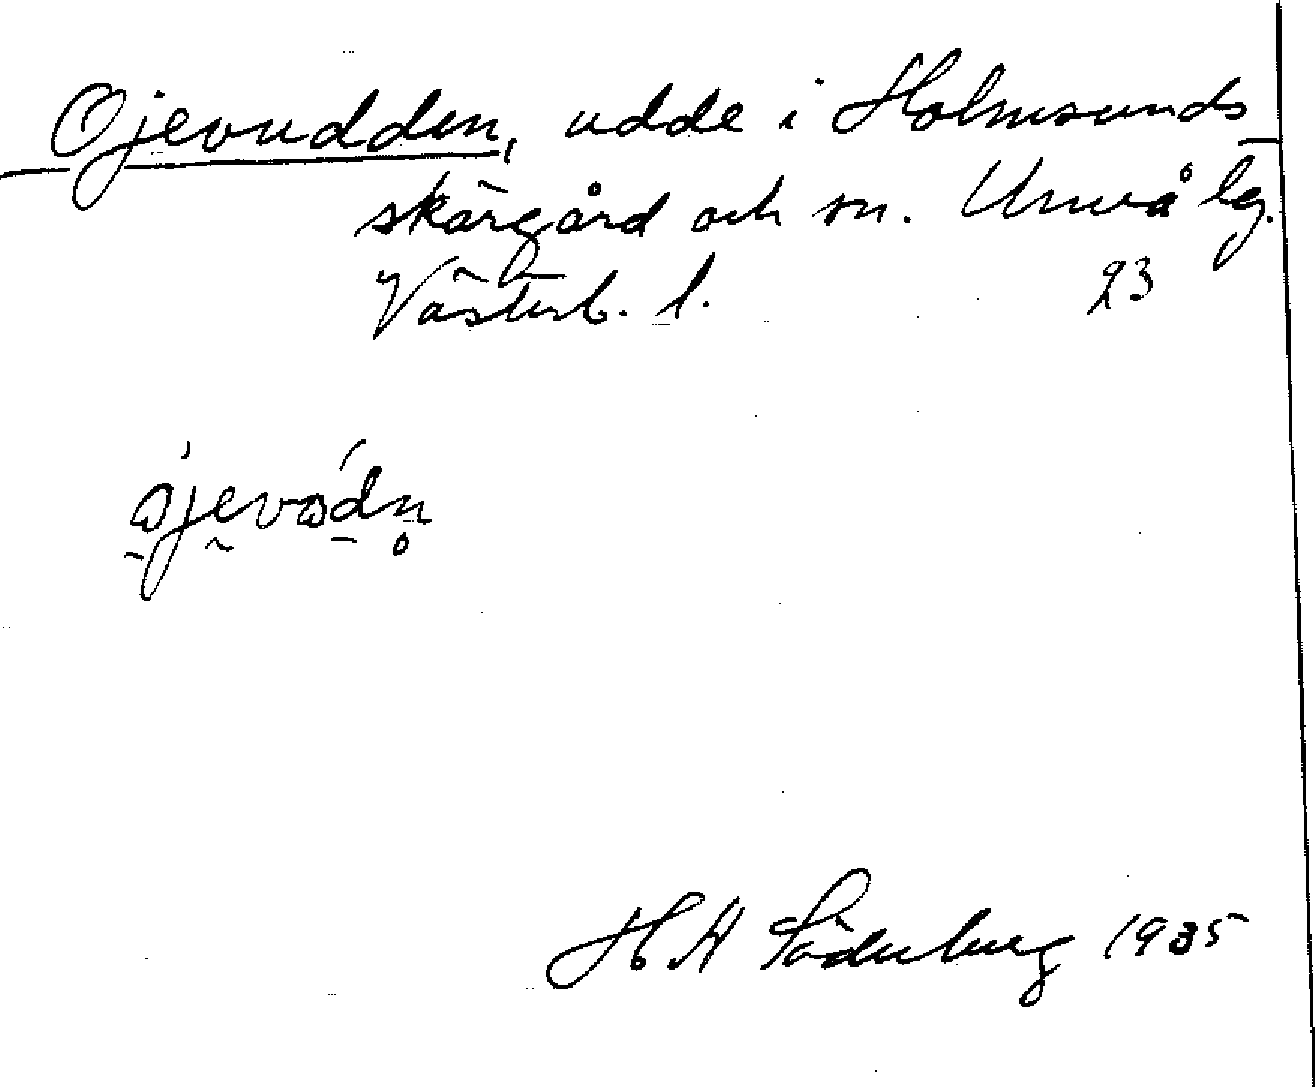 Ojevudden, udde i Holmsunds
skärgård och sn. Umeå lg.
Västerb. l. 23
H A Söderberg 1935